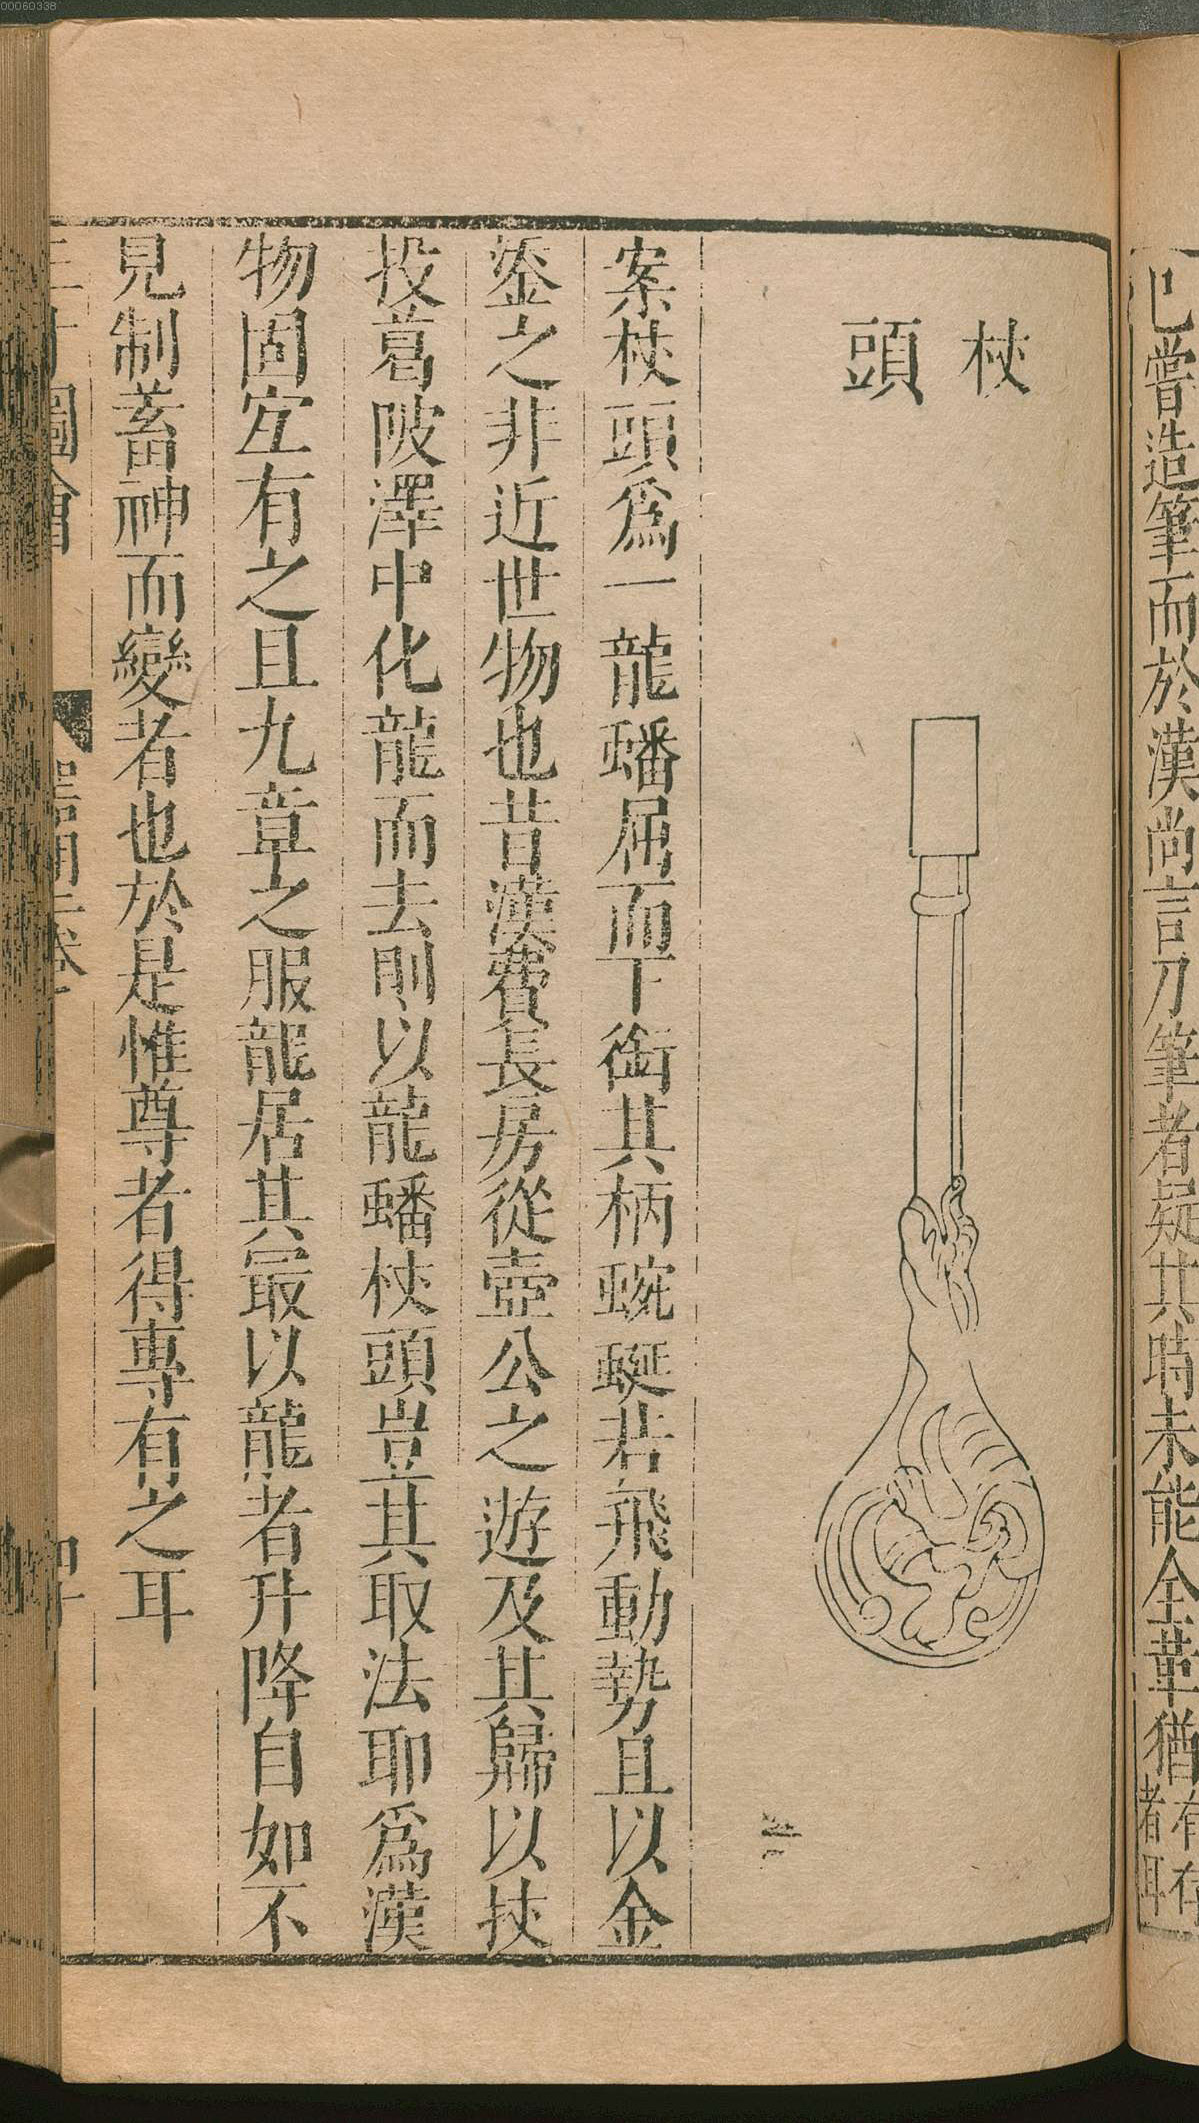 00060338
已嘗造筆而於漢尚言刀筆者疑其時未能全革猶有存
者耳
杖
頭
案杖頭爲一龍蟠屈而下銜其柄蜿蜒若飛動勢且以金
鎏之非近世物也昔漢費長房從壺公之遊及其歸以扙
投葛陂澤中化龍而去則以龍蟠杖頭豈其取法耶爲漢
物固宜有之且九章之服龍居其最以龍者升降自如不
見制蓄神而變者也於是惟尊者得專有之耳
圖會